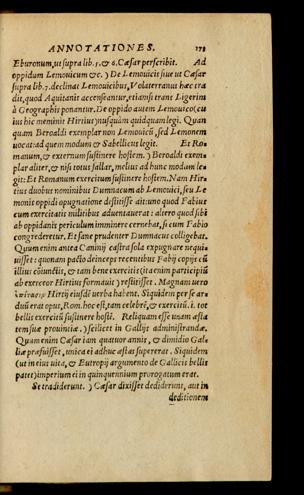 ANNOTATIONES. 173
Eburonum, ut supra lib. 5. & 6. Cæsar perscribit. Ad
oppidum Lemouicum &c. ) De Lemouicis siue ut Cæsar
supra lib. 7. declinat Lemouicibus, Volaterranus hæc tra
dit, quod Aquitanis accenseantur, etiamsi trans Ligerim
à Geographis ponantur. De oppido autem Lemouico (cu
ius hic meminit Hirtius) nusquàm quidquam legi. Quan
quam Beroaldi exemplar non Lemouicũ, sed Lemonem
uocat: ad quem modum & Sabellicus legit. Et Ro-
manum, & externum sustinere hostem. ) Beroaldi exem-
plar aliter, & nisi totus fallar, melius ad hunc modum le-
git: Et Romanum exercitum sustinere hostem. Nam Hir
tius duobus nominibus Dumnacum ab Lemouici, seu Le
monis oppidi opugnatione destitisse ait: uno quod Fabius
cum exercitatis militibus aduentauerat: altero quod sibi
ab oppidanis periculum imminere cernebat, si cum Fabio
congrederetur. Et sanè prudenter Dumnacus colligebat.
Quum enim antea Caninij castra sola expugnare nequi
uisset: quonam pacto deinceps recentibus Fabij copijs cũ
illius cõiunctis, & tam bene exercitis (ita enim participiũ
ab exerceor Hirtius formauit) restitisset. Magnam uero
Hirtij eiusdẽ uerba habent. Siquidem per se ar
duũ erat opus, Rom. hoc est, tam celebrẽ, & exercitũ. i. tot
bellis exercitũ sustinere hostẽ. Reliquam esse unam æsta
tem suæ prouinciæ. ) scilicet in Gallijs administrandæ.
Quum enim Cæsar iam quatuor annis, & dimidio Gal-
liæ præfuisset, unica ei adhuc æstas supererat. Siquidem
(ut in eius uita, & Eutropij argumento de Gallicis bellis
patet) imperium ei in quinquennium prorogatum erat.
Se tradiderunt. ) Cæsar dixisset dediderunt, aut in
deditionem